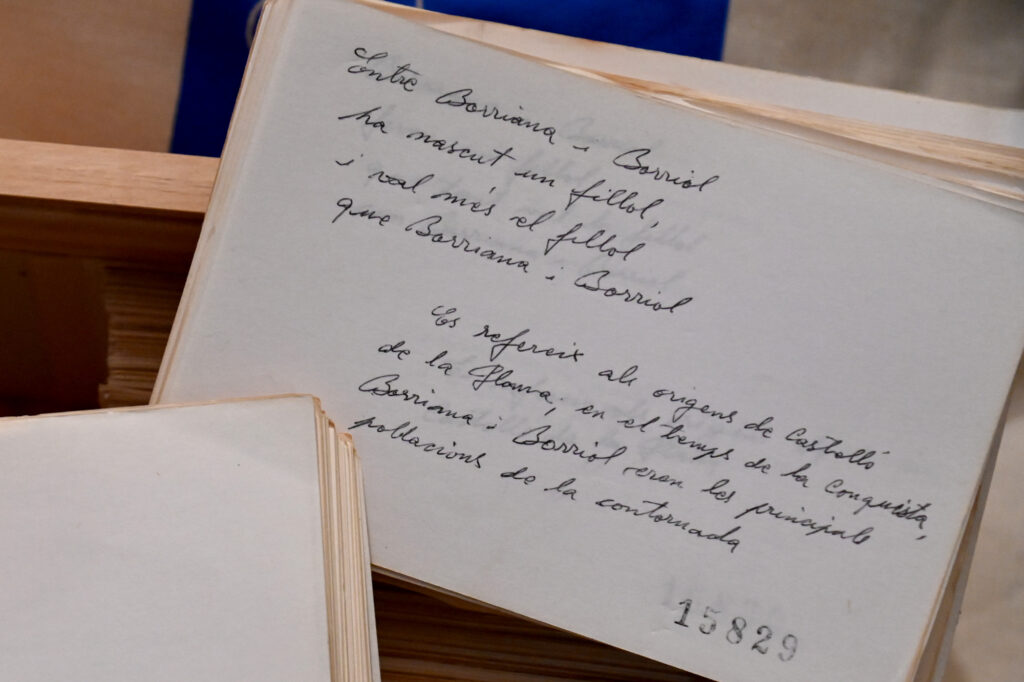 Entre Borriana i Borriol
ha nascut un fillol,
i val més el fillol
que Borriana i Borriol
Es refereix als origens de Castelló
de la Plana; en el temps de la Conquista,
Borriana i Borriol eren les principals
poblacions de la contornada
15829